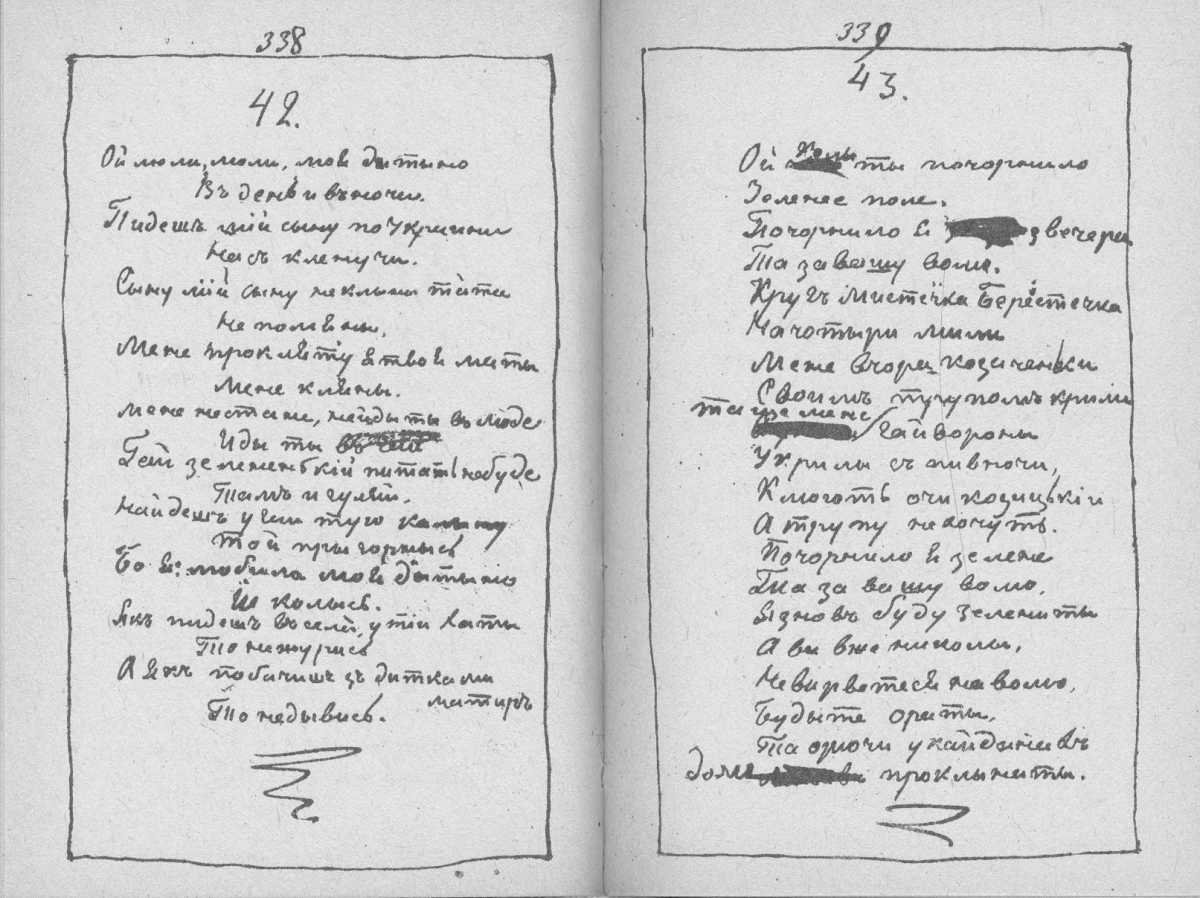 338
42.
Ой люли, люли, моя дытыно
Въ день и въночи.
Пидешъ мій сыну поУкраини
Насъ кленучи.
Сыну мій сыну неклыны тата
Непомяны.
Мене прокляту я твоя маты
Мене кляны.
Мене нестане, нейды ты въ люде
Иды ты
Гай зелененькій питать небуде
Тамъ и гуляй.
Найдешъ у гаи тую калыну
Той прыгорнысь
Бо я: любила моя дытыно
Ѝ колысь.
Якъ пидешъ въсела, у тіи хаты
То нежурись
А якъ побачишъ зъ дитками
матирь
То недывысь.
339
43.
Ой чого ты почорнило
Зеленее поле.
Почорнило я звечера
Та завашу волю.
Кругъ Мистечка Берестечка
Начотыри мили
Мене вчора козаченьки
Своимъ трупомъ крили
та ще мене
Гайвороны
Укрилы съ пивночи,
Клюють очи козацькіи
А трупу нехочуть.
Почорнило я зелене
Та за вашу волю,
Язновъ буду зеленити
А ви вже николы,
Невирветеся наволю,
Будыте ораты,
Та орючи укайдинахъ
долю проклынаты.